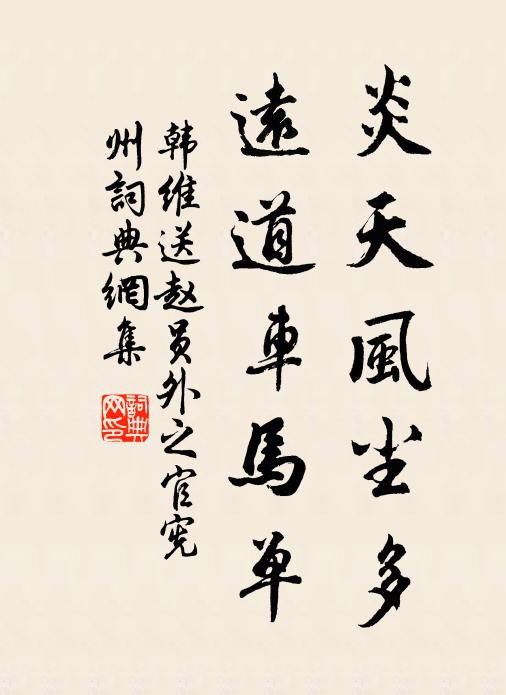 炎天風尘多
遠道車馬单
韩維送赵員外之官兖
州詞典網集
詞典
网印